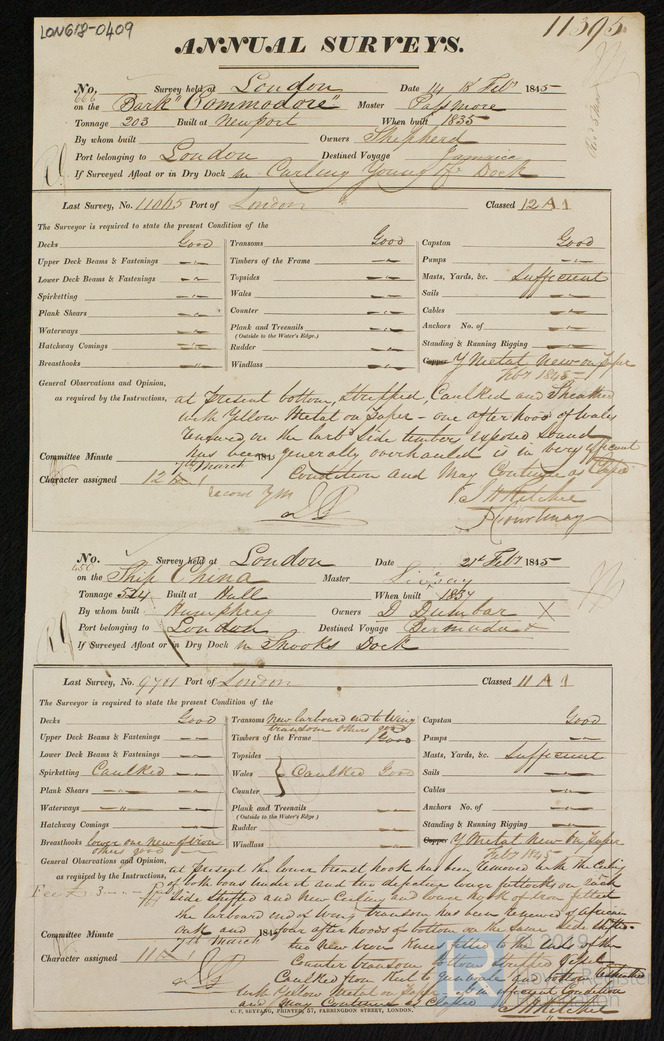 LON618-0409
11395
ANNUAL SURVEYS.
No. 666 Survey held at London Date 14 & 18 Feby 1845
on the Bark "Commodore" Master Passmore
Tonnage 203 Built at Newport When built 1835
By whom built Owners Shepherd
Port belonging to London Destined Voyage Jamaica
If Surveyed Afloat or in Dry Dock in Curling Young & Co Dock
Last Survey, No. 11065 Port of London Classed 12 A 1
The Surveyor is required to state the present Condition of the
Decks Good Transoms Good Capstan Good
Upper Deck Beams & Fastenings Timbers of the Frame Pumps
Lower Deck Beams & Fastenings Topsides Masts, Yards, &c. Sufficient
Spirketting Wales Sails
Plank Shears Counter Cables
Waterways Plank and Treenails Anchors No. of
(Outside to the Water's Edge.)
Hatchway Comings Rudder Standing & Running Rigging
Breasthooks Windlass Copper Y Metal New on Paper
Feby 1845
General Observations and Opinion, at Present bottom, Stripped, Caulked and Sheathed
as required by the Instructions, with Yellow Metal on Paper - one after hood of Wales
renewed on the larbd side timbers exposed Sound
has been generally overhauled is in very efficient
Committee Minute 7th March 184 Condition and May Continue as Classed
Character assigned 12 A 1
record YM
J H Ritchie
J Courtenay
No. 450 Survey held at London Date 21st Feby 1845
on the Ship China Master Livesay
Tonnage 524 Built at Hull When built 1834
By whom built Humphrey Owners D Dunbar X
Port belonging to London Destined Voyage Bermuda
If Surveyed Afloat or in Dry Dock in Snooks Dock
Last Survey, No. 9701 Port of London Classed 11 A 1
The Surveyor is required to state the present Condition of the
Decks Good Transoms New larboard end to Wing transom others good Capstan Good
Upper Deck Beams & Fastenings Timbers of the Frame Good Pumps
Lower Deck Beams & Fastenings Topsides Masts, Yards, &c. Sufficient
Spirketting Caulked Wales Caulked Good Sails
Plank Shears Counter Cables
Waterways Plank and Treenails Anchors No. of
(Outside to the Water's Edge.)
Hatchway Comings Rudder Standing & Running Rigging
Breasthooks lower one new of iron others good Windlass Copper Y Metal New on Paper
Feby 1845
General Observations and Opinion, at Present the lower breast hook has been removed with the Ceiling
as required by the Instructions, of both bows under it and two defective lower futtocks on each
Fee £3 side shifted and New Ceiling and lower hook of iron fitted
the larboard end of Wing transom has been renewed of african
Committee Minute 7th March 184 oak and four after hoods of bottom on the same side shifted.
two New iron Knees fitted to the ends of the
Character assigned 11 A 1 Counter transom Bottom Stripped
Caulked from Keel to gunwale and bottom
with Yellow Metal on Paper is in efficient Condition
and May Continue as Classed J H Ritchie
C. F. SEYFANG, PRINTER, 57, FARRINGDON STREET, LONDON.
Lloyd's Register
Foundation